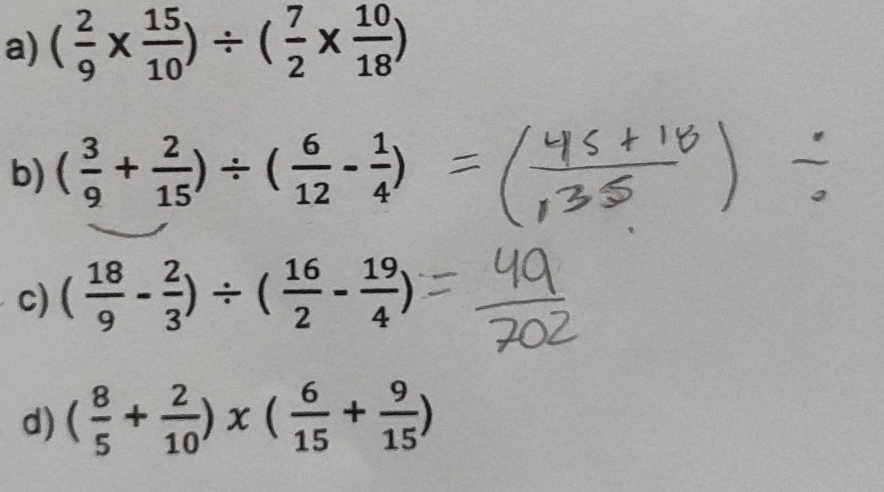 a) (2/9 x 15/10) ÷ (7/2 x 10/18)
b) (3/9 + 2/15) ÷ (6/12 - 1/4) = (45 + 18/135) ÷
c) (18/9 - 2/3) ÷ (16/2 - 19/4) = 49/702
d) (8/5 + 2/10) x (6/15 + 9/15)